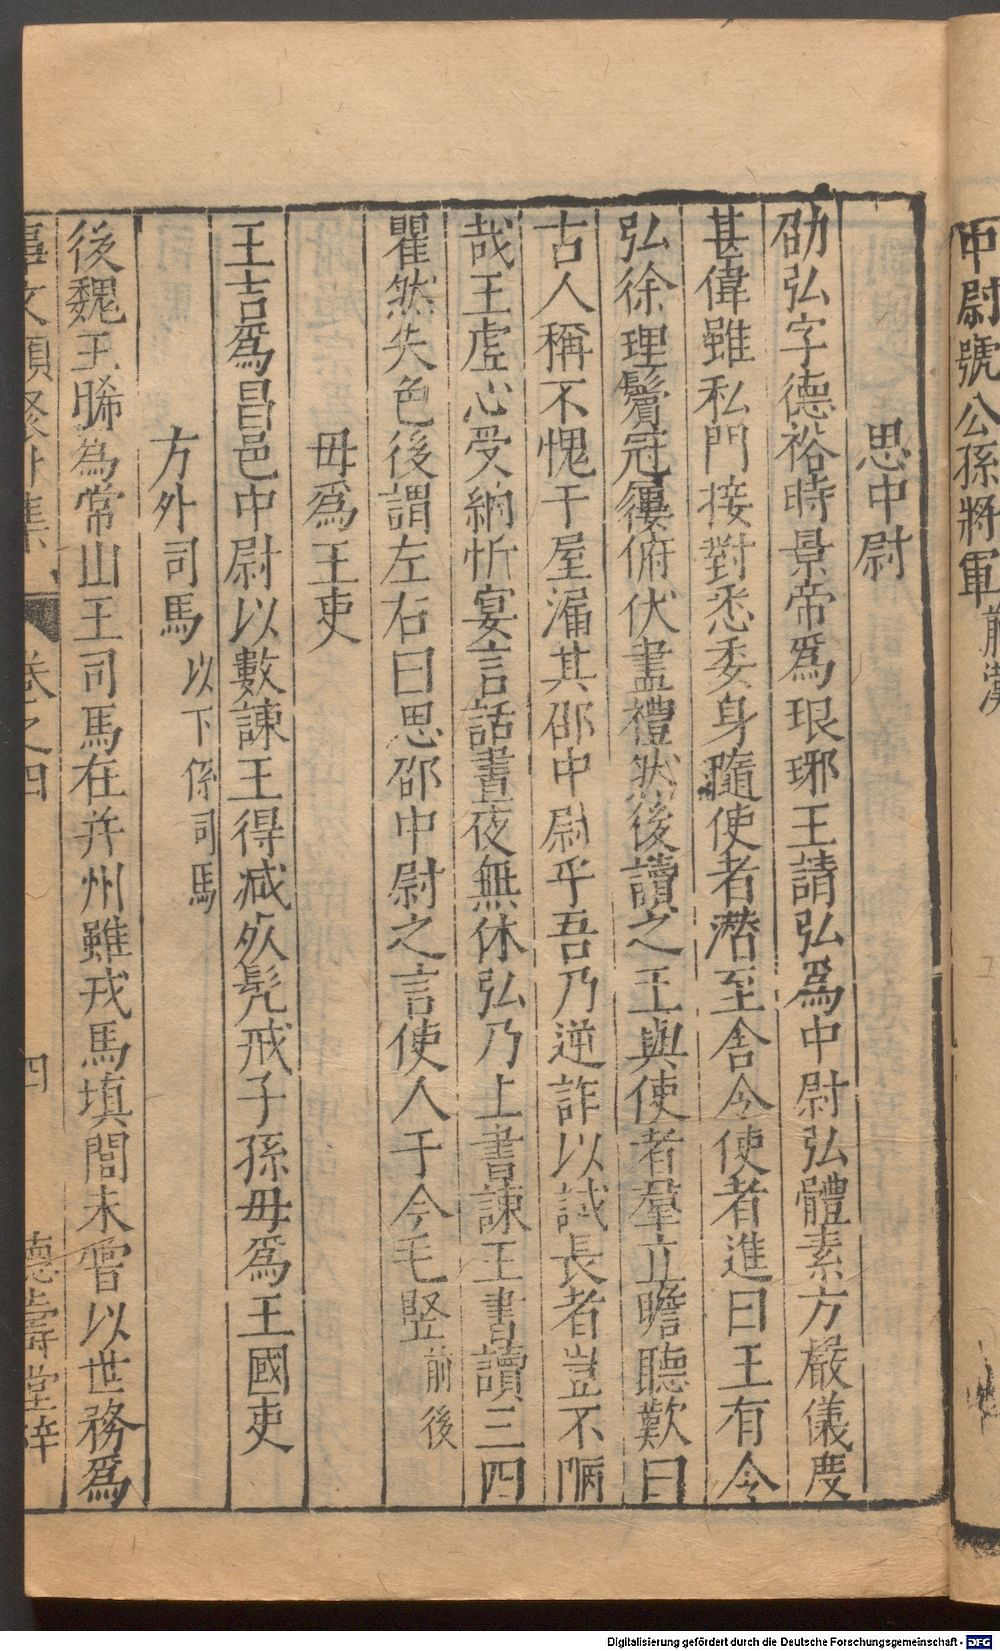 中尉號公孫將軍前漢
思中尉
邵弘字德裕時景帝爲琅琊王請弘爲中尉弘體素方嚴儀度
甚偉雖私門接對悉委身隨使者潛至舍令使者進曰王有令
弘徐理鬢冠纓俯伏盡禮然後讀之王與使者羣立瞻聽歎曰
古人稱不愧于屋漏其邵中尉乎吾乃逆詐以試長者豈不陋
哉王虛心受納忻宴言話晝夜無休弘乃上書諫王書讀三四
瞿然失色後謂左右曰思邵中尉之言使人于今毛竪前後
毋爲王吏
王吉爲昌邑中尉以數諫王得减死髡戒子孫毋爲王國吏
方外司馬以下係司馬
後魏王晞爲常山王司馬在并州雖戎馬填閭未嘗以世務爲
事文類聚外集 卷之四 四 德壽堂梓
Digitalisierung gefördert durch die Deutsche Forschungsgemeinschaft - DFG